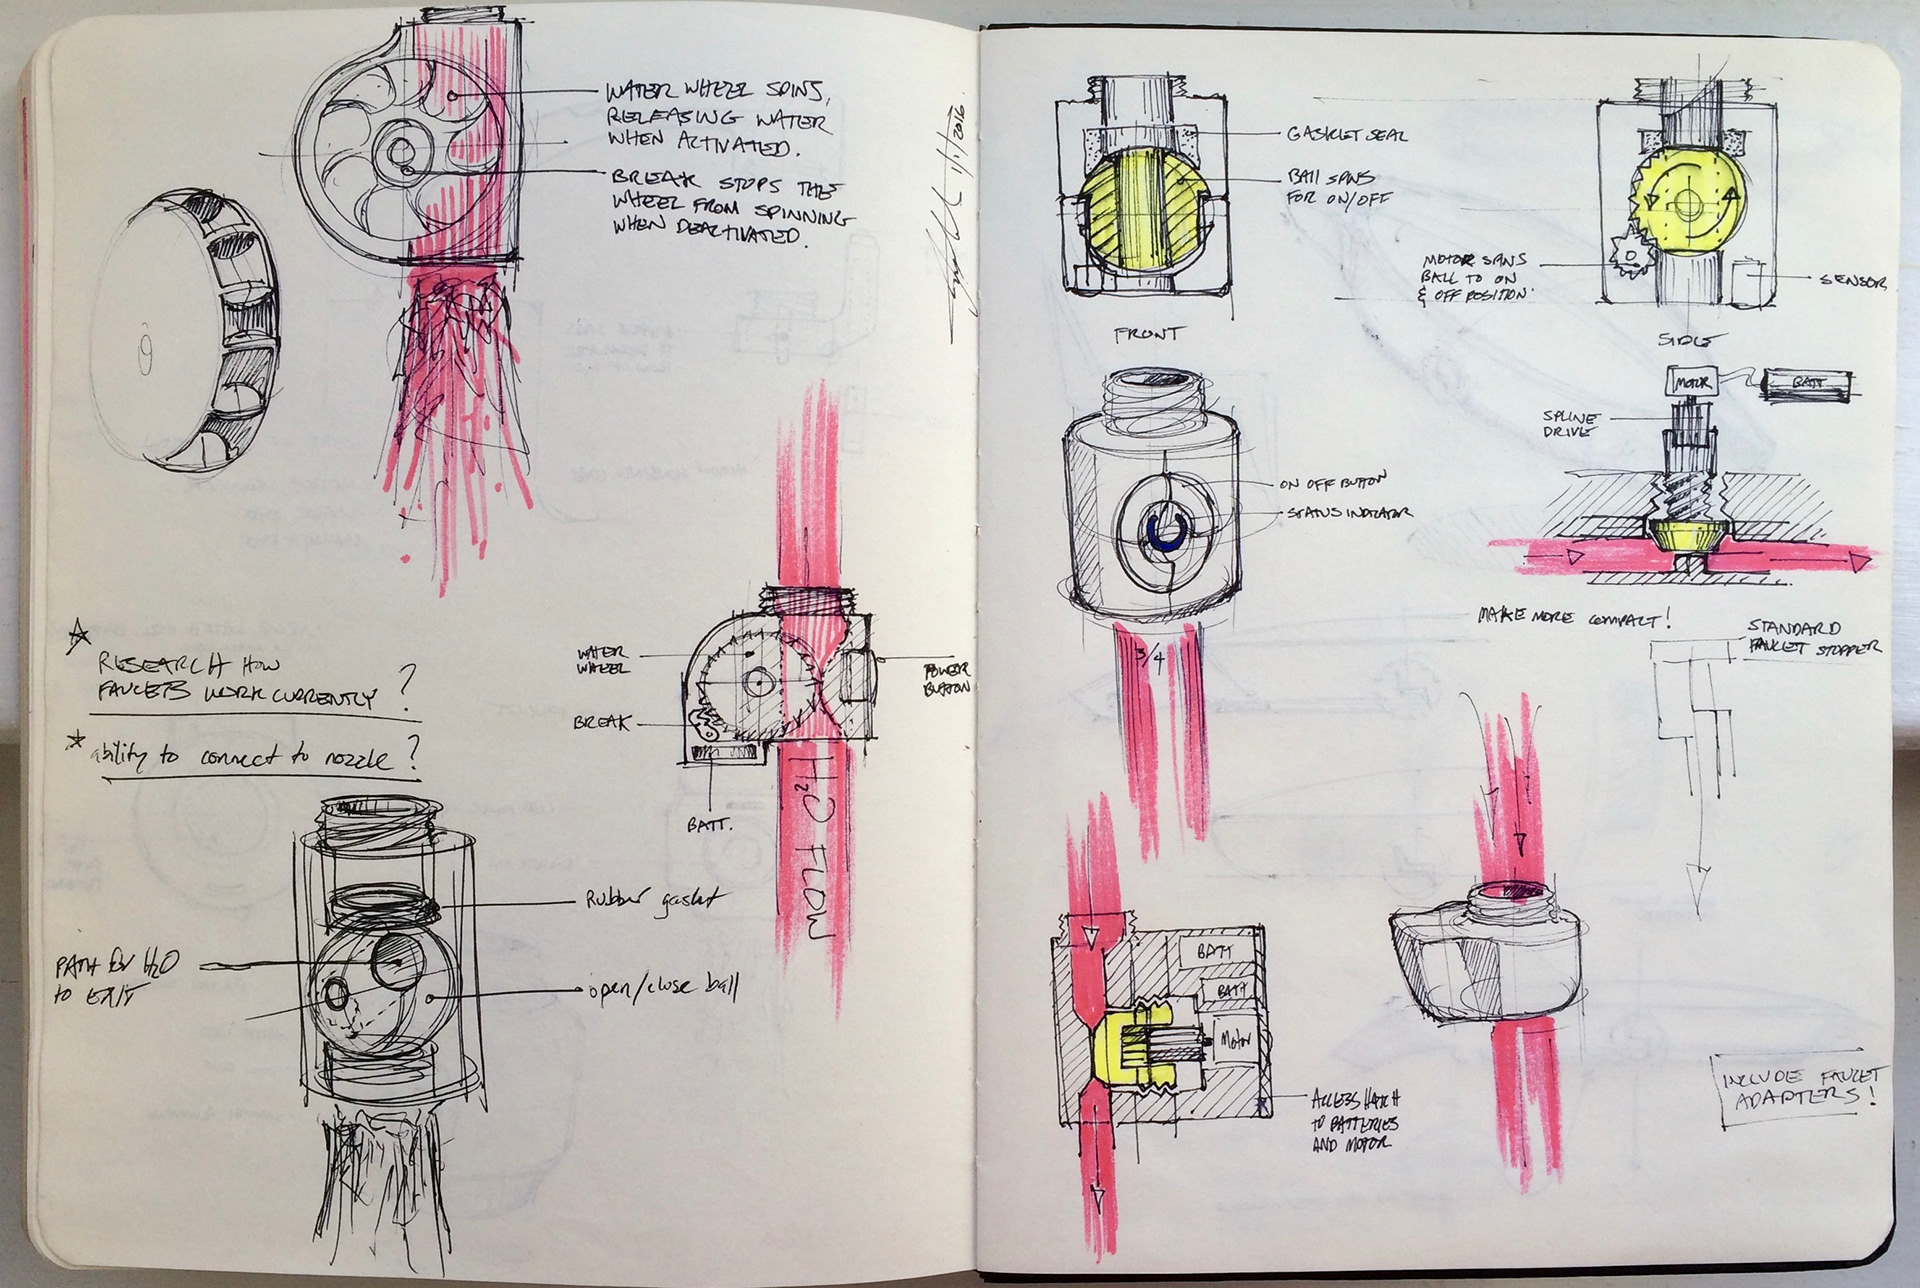 WATER WHEEL SPINS,
RELEASING WATER
WHEN ACTIVATED.
BREAK STOPS THE
WHEEL FROM SPINNING
WHEN DEACTIVATED.
1/1/2016
RESEARCH HOW
FAUCETS WORK CURRENTLY ?
ability to connect to nozzle ?
WATER
WHEEL
BREAK
BATT.
POWER
BUTTON
H2O FLOW
Rubber gasket
PATH FOR H2O
TO EXIT
open/close ball
GASKET SEAL
BALL SPINS
FOR ON/OFF
FRONT
MOTOR SPINS
BALL TO ON
& OFF POSITION.
SENSOR
SIDE
MOTOR
BATT
SPLINE
DRIVE
ON OFF BUTTON
STATUS INDICATOR
3/4
MAKE MORE COMPACT!
STANDARD
FAUCET STOPPER
BATT
BATT
MOTOR
ACCESS HATCH
TO BATTERIES
AND MOTOR
INCLUDE FAUCET
ADAPTERS!